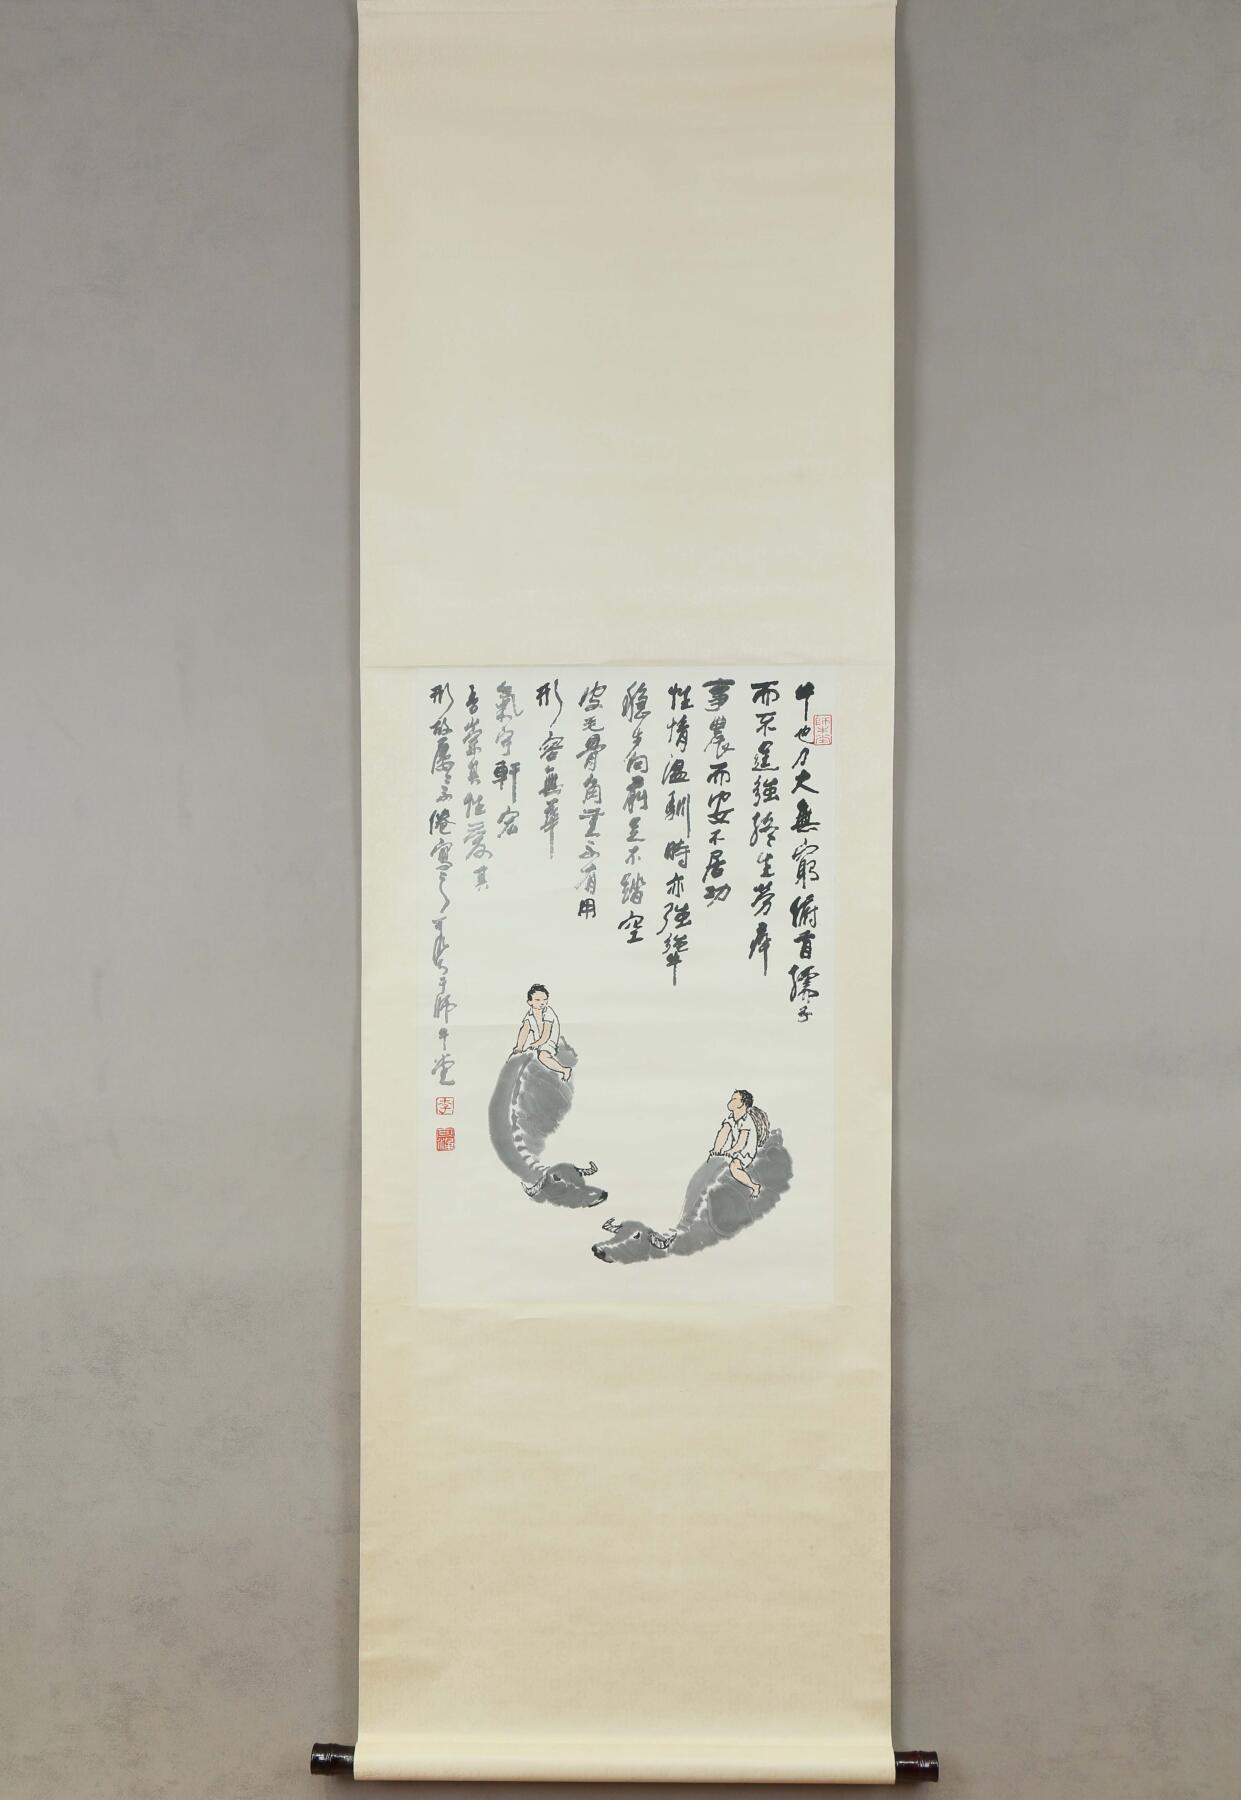 牛也力大無窮俯首孺子
而不逞強終生勞瘁
事農而安不居功
性情溫馴時亦強犟
穩步向前足不踏空
皮毛骨角無不有用
形容無華
氣宇軒宏
吾崇其性愛其
形故屢屢不倦寫之可染於師牛堂
師牛堂
李
可染